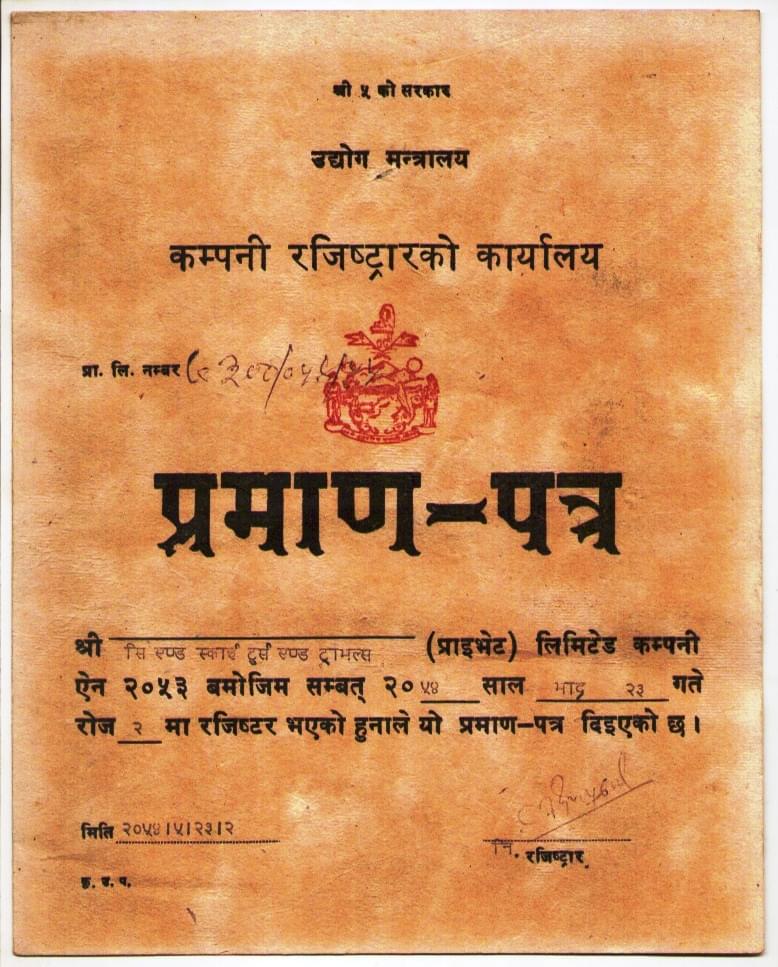 श्री ५ को सरकार
उद्योग मन्त्रालय
कम्पनी रजिष्ट्रारको कार्यालय
प्रा. लि. नम्बर
प्रमाण-पत्र
श्री सि एण्ड स्काई टुर्स एण्ड ट्राभल्स (प्राइभेट) लिमिटेड कम्पनी
ऐन २०५३ बमोजिम सम्बत् २० ५४ साल भाद्र २३ गते
रोज २ मा रजिष्टर भएको हुनाले यो प्रमाण-पत्र दिइएको छ।
मिति २०५४।५।२३।२
नि. रजिष्ट्रार